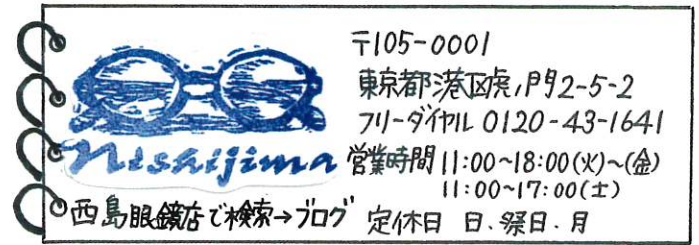 Nishijima
西島眼鏡店で検索→ブログ
〒105-0001
東京都港区虎ノ門2-5-2
フリーダイヤル 0120-43-1641
営業時間 11:00~18:00(火)~(金)
11:00~17:00(土)
定休日 日、祭日、月